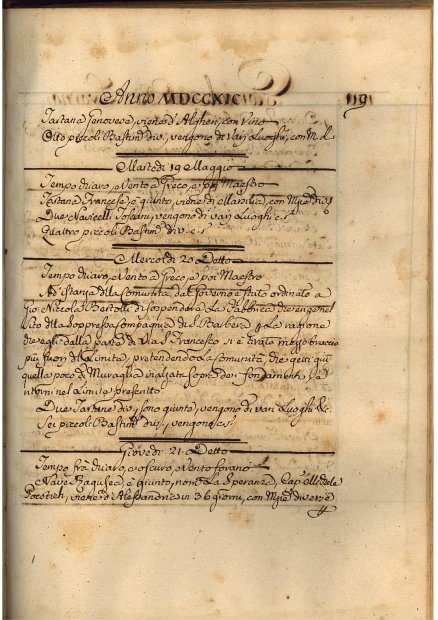 Anno MDCCXCI 119
Tartana Genovese, viene d'Algheri, con Vino
Otto piccoli Bastim.ti div.i, vengono di Varj Luoghi, con M.
Martedi 19 Maggio
Tempo chiaro, e Vento a Greco, e poi Maestro
Tartana Francese, è giunto, viene di Marsilia, con
Due Navicelli Toscani, vengono di varj Luoghi
Quattro piccoli Bastim.ti div.i
Mercordi 20 Detto
Tempo chiaro, e Vento a Greco, e poi Maestro
Ad istanza della Comunità, dal Governo è stato ordinato a
Gio: Niccola Bertolli di sospendere La Fabbrica che viene nel
sito della Soppressa Compagnia di S. Barbera La ragione
che egli dalla parte di Via S. Francesco si è tirato mezzo braccio
più fuori di Limita, pretendendo La Comunità, che getti giù
quella poca di Muraglia rialzata sopra dei fondamenti, e
ritorni nel Limite prescritto
Due Tartane div.e, sono giunte, vengono di varj Luoghi &c.
Sei piccoli Bastim.ti div.i, vengono
Giovedi 21 Detto
Tempo frà chiaro, e oscuro, e Vento forano
Nave Ragusea, è giunto, nom.ta La Speranza, Cap.
viene d'Alessandria in 36 giorni, con diverse